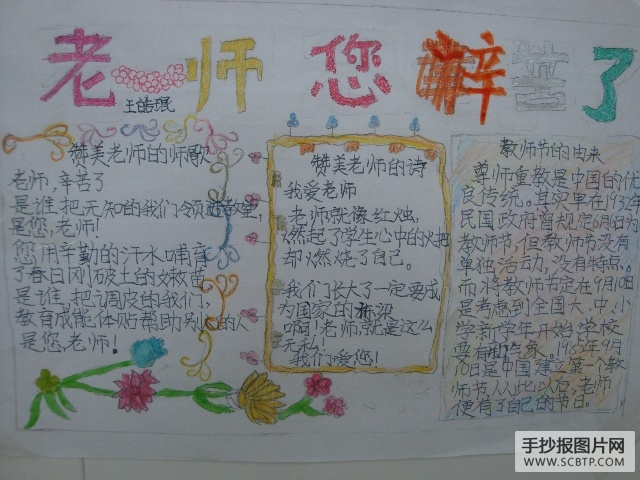 老师您辛苦了
王皓琨
赞美老师的师歌
老师,辛苦了
是谁把无知的我们领进教室,
是您,老师!
您用辛勤的汗水哺育
了春日刚破土的嫩苗
是谁把调皮的我们,
教育成能体贴帮助别人的人
是您,老师!
赞美老师的诗
我爱老师
老师就像红烛,
燃起了学生心中的火把
却燃烧了自己。
我们长大了一定要成
为国家的栋梁
啊!老师就是这么
无私,
我们爱您!
教师节的由来
尊师重教是中国的优
良传统。其实早在1932年
民国政府曾规定6月6日为
教师节,但教师节没有
单独活动,没有特点。
而将教师节定在9月10日
是考虑到全国大、中、小
学新学年开始,学校
要有新气象,1985年9月
10日是中国建立第一个教
师节从此以后,老师
便有了自己的节日。
手抄报图片网
WWW.SCBTP.COM